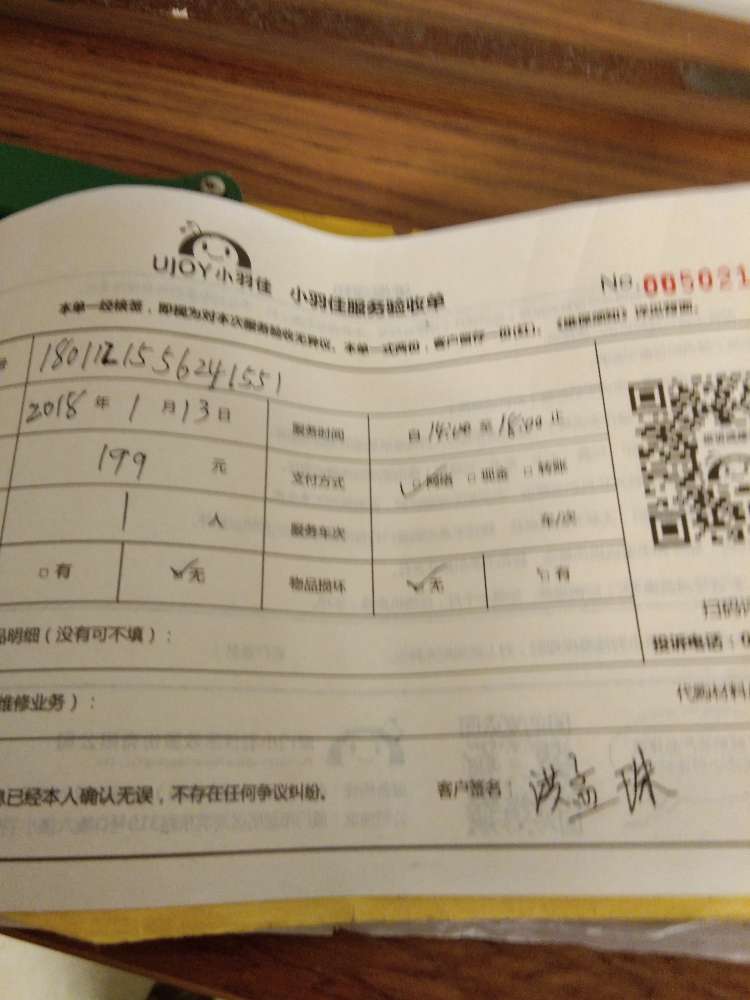 UJOY小羽佳 小羽佳服务验收单
No.005021
本单一经核签,即视为对本次服务验收无异议。本单一式两份,客户留存一份(红)。
1801121556241551
2018 年 1 月 13 日 服务时间 自 14:00 至 18:00 止
199 元 支付方式 网络 现金 转账
1 人 服务车次 车/次
有 无 物品损坏 无 有
品明细(没有可不填):
投诉电话:0
维修业务):
代购材料
息已经本人确认无误,不存在任何争议纠纷。 客户签名:洪 珠